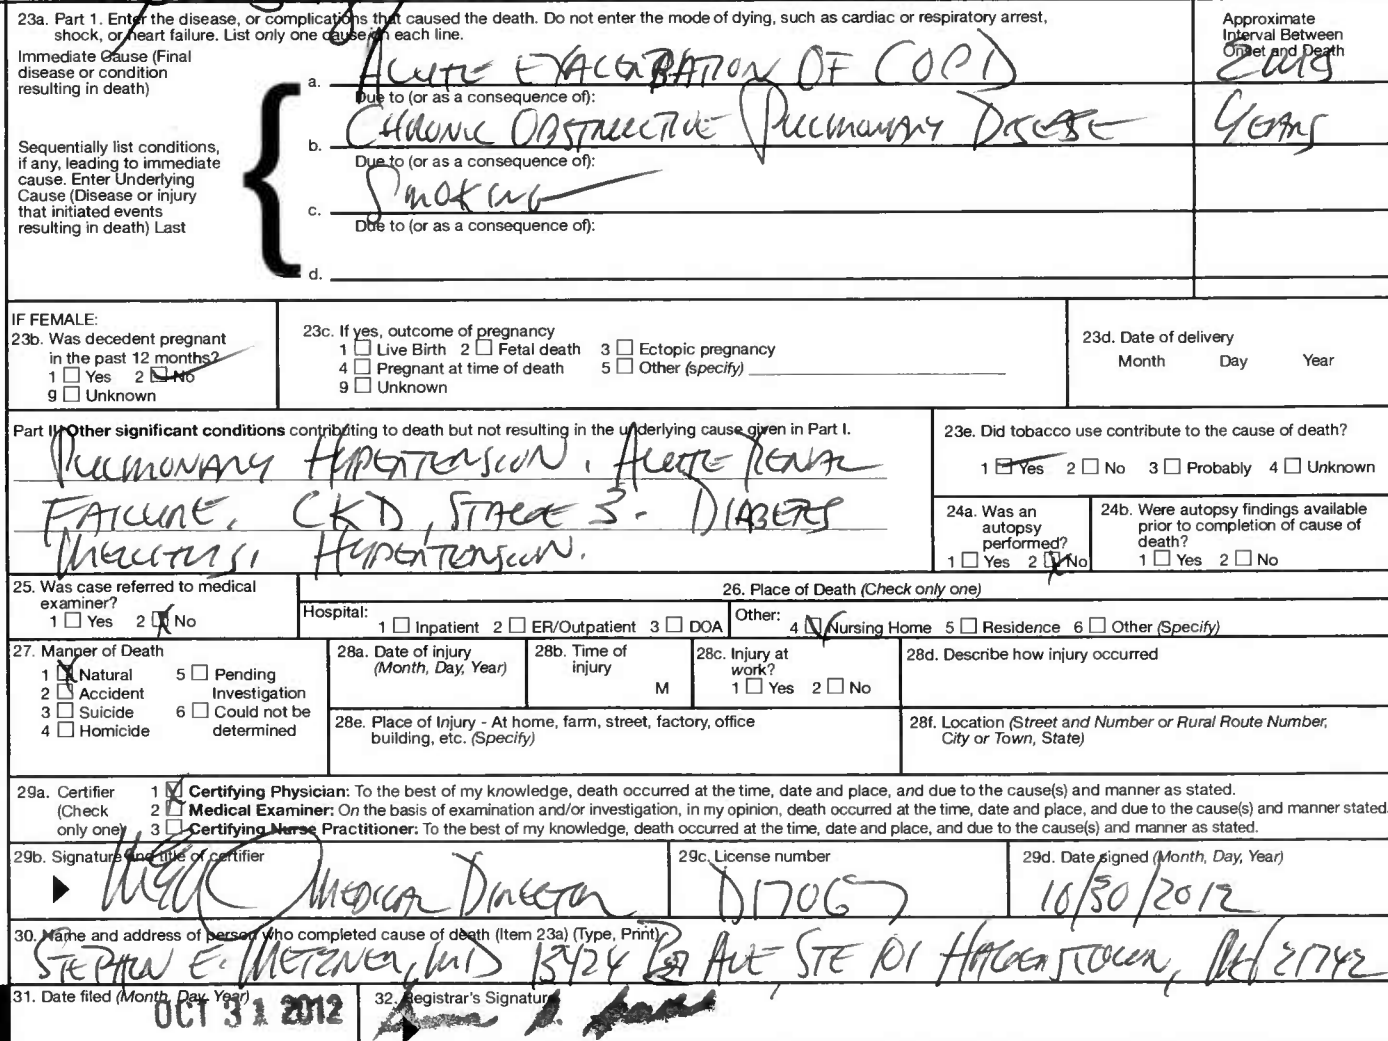 23a. Part 1. Enter the disease, or complications that caused the death. Do not enter the mode of dying, such as cardiac or respiratory arrest,
shock, or heart failure. List only one cause on each line.
Approximate
Interval Between
Onset and Death
Immediate Cause (Final
disease or condition
resulting in death)
a. ACUTE EXACERBATION OF COPD
Due to (or as a consequence of):
b. CHRONIC OBSTRUCTIVE PULMONARY DISEASE YEARS
Sequentially list conditions,
if any, leading to immediate
cause. Enter Underlying
Cause (Disease or injury
that initiated events
resulting in death) Last
Due to (or as a consequence of):
c. SMOKING
Due to (or as a consequence of):
d.
IF FEMALE:
23b. Was decedent pregnant
in the past 12 months?
1 ☐ Yes 2 ☑ No
9 ☐ Unknown
23c. If yes, outcome of pregnancy
1 ☐ Live Birth 2 ☐ Fetal death 3 ☐ Ectopic pregnancy
4 ☐ Pregnant at time of death 5 ☐ Other (specify)
9 ☐ Unknown
23d. Date of delivery
Month Day Year
Part II. Other significant conditions contributing to death but not resulting in the underlying cause given in Part I.
PULMONARY HYPERTENSION, ACUTE RENAL
FAILURE, CKD, STAGE 3. DIABETES
MELLITUS, HYPERTENSION.
23e. Did tobacco use contribute to the cause of death?
1 ☑ Yes 2 ☐ No 3 ☐ Probably 4 ☐ Unknown
24a. Was an
autopsy
performed?
1 ☐ Yes 2 ☒ No
24b. Were autopsy findings available
prior to completion of cause of
death?
1 ☐ Yes 2 ☐ No
25. Was case referred to medical
examiner?
1 ☐ Yes 2 ☒ No
26. Place of Death (Check only one)
Hospital: 1 ☐ Inpatient 2 ☐ ER/Outpatient 3 ☐ DOA
Other: 4 ☑ Nursing Home 5 ☐ Residence 6 ☐ Other (Specify)
27. Manner of Death
1 ☒ Natural 5 ☐ Pending
2 ☐ Accident Investigation
3 ☐ Suicide 6 ☐ Could not be
4 ☐ Homicide determined
28a. Date of injury
(Month, Day, Year)
28b. Time of
injury
M
28c. Injury at
work?
1 ☐ Yes 2 ☐ No
28d. Describe how injury occurred
28e. Place of Injury - At home, farm, street, factory, office
building, etc. (Specify)
28f. Location (Street and Number or Rural Route Number,
City or Town, State)
29a. Certifier
(Check
only one)
1 ☒ Certifying Physician: To the best of my knowledge, death occurred at the time, date and place, and due to the cause(s) and manner as stated.
2 ☐ Medical Examiner: On the basis of examination and/or investigation, in my opinion, death occurred at the time, date and place, and due to the cause(s) and manner stated.
3 ☐ Certifying Nurse Practitioner: To the best of my knowledge, death occurred at the time, date and place, and due to the cause(s) and manner as stated.
29b. Signature and title of certifier
MEDICAL DIRECTOR
29c. License number
D17067
29d. Date signed (Month, Day, Year)
10/30/2012
30. Name and address of person who completed cause of death (Item 23a) (Type, Print)
STEPHEN E. METZNER, MD 13424 PA AVE STE 101 HAGERSTOWN, Md 21742
31. Date filed (Month, Day, Year)
OCT 31 2012
32. Registrar's Signature